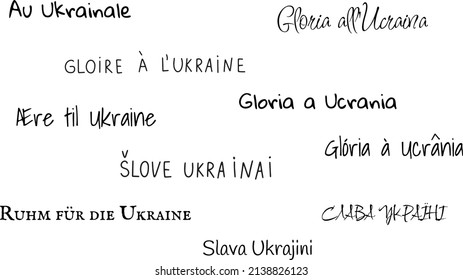 Au Ukrainale
Gloria all'Ucraina
GLOIRE À L'UKRAINE
Gloria a Ucrania
Ære til Ukraine
Glória à Ucrânia
ŠLOVE UKRAINAI
Ruhm für die Ukraine
СЛАВА УКРАЇНІ
Slava Ukrajini
shutterstock.com · 2138826123